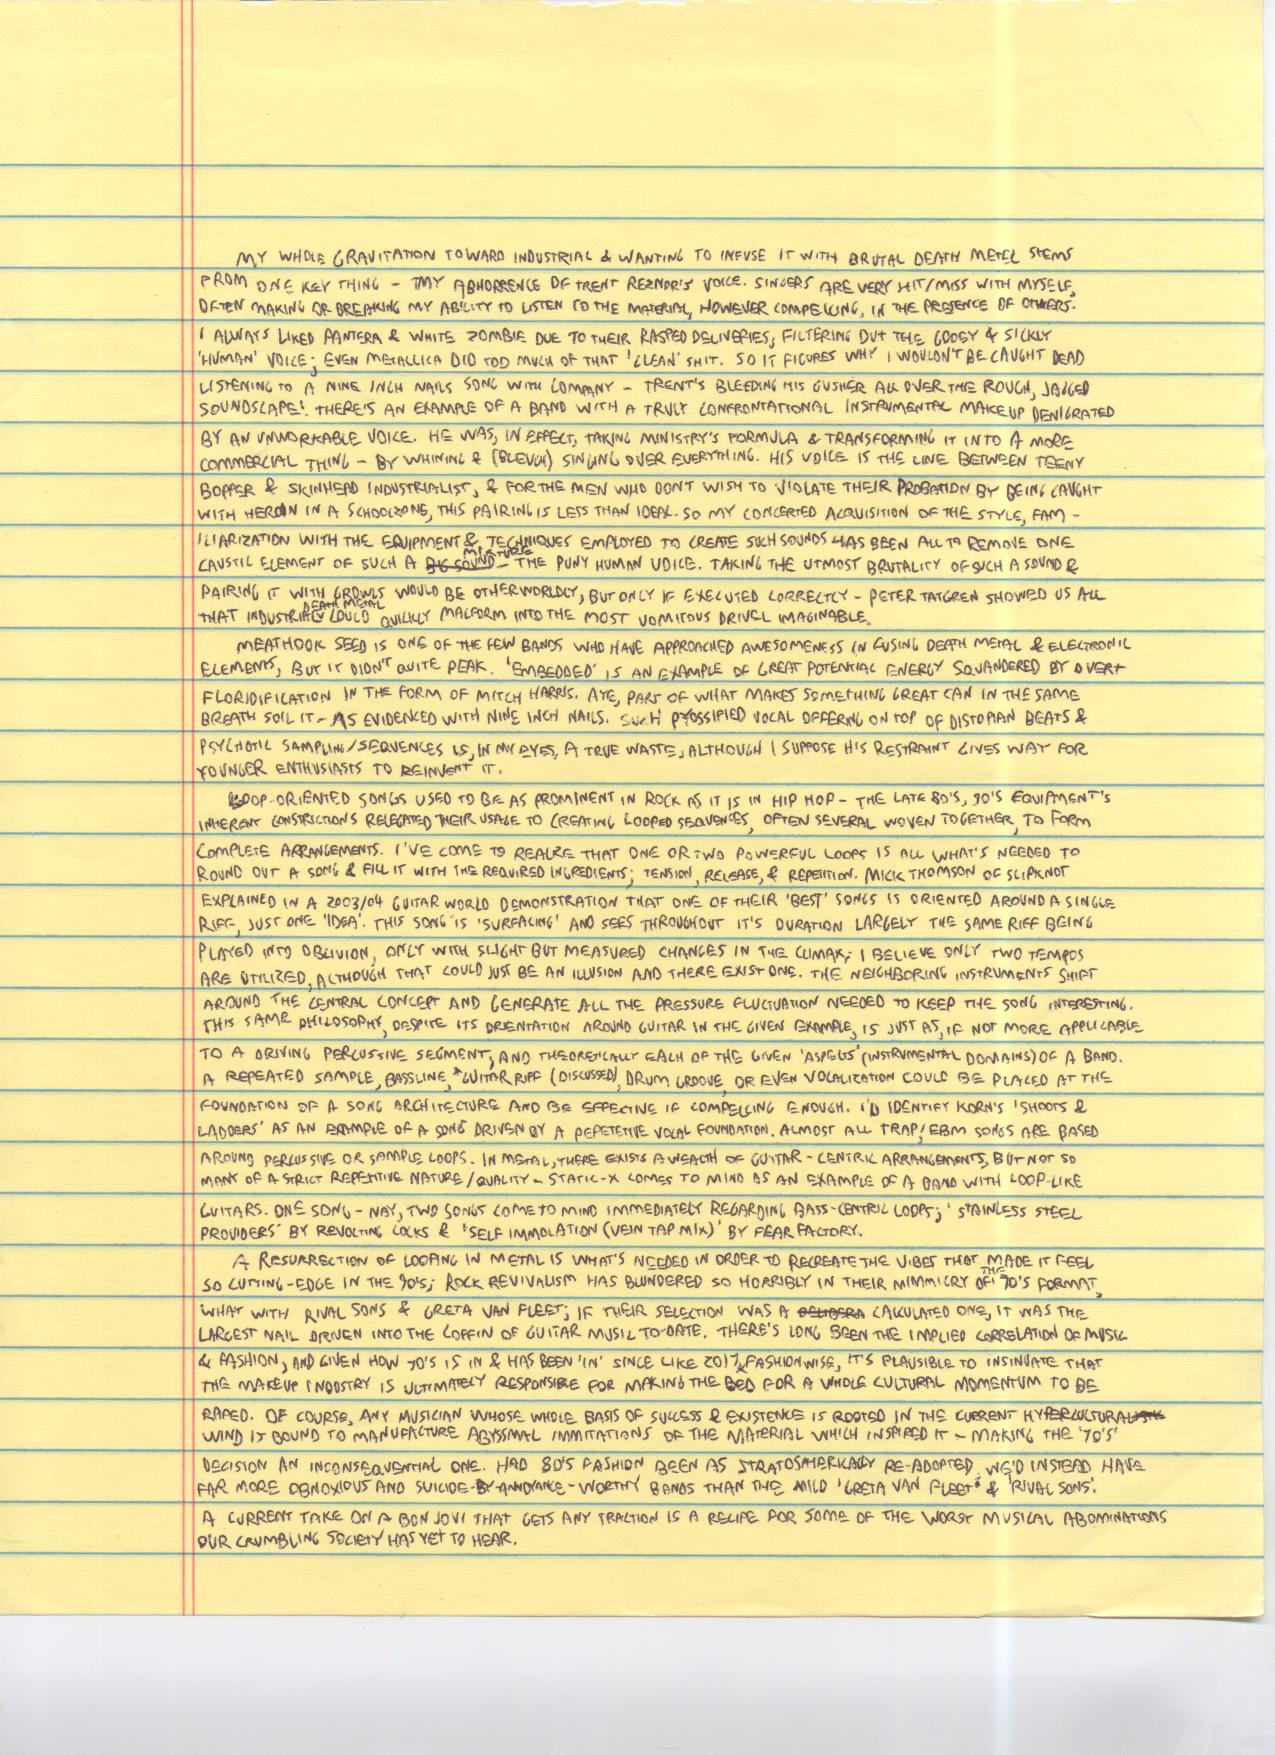 MY WHOLE GRAVITATION TOWARD INDUSTRIAL & WANTING TO INFUSE IT WITH BRUTAL DEATH METEL STEMS
FROM ONE KEY THING - MY ABHORRENCE OF TRENT REZNOR'S VOICE. SINGERS ARE VERY HIT/MISS WITH MYSELF,
OFTEN MAKING OR BREAKING MY ABILITY TO LISTEN TO THE MATERIAL, HOWEVER COMPELLING, IN THE PRESENCE OF OTHERS.
I ALWAYS LIKED PANTERA & WHITE ZOMBIE DUE TO THEIR RASPED DELIVERIES, FILTERING OUT THE GOOEY & SICKLY
'HUMAN' VOICE; EVEN METALLICA DID TOO MUCH OF THAT 'CLEAN' SHIT. SO IT FIGURES WHY I WOULDN'T BE CAUGHT DEAD
LISTENING TO A NINE INCH NAILS SONG WITH COMPANY - TRENT'S BLEEDING HIS GUSHER ALL OVER THE ROUGH, JAGGED
SOUNDSCAPE! THERE'S AN EXAMPLE OF A BAND WITH A TRULY CONFRONTATIONAL INSTRUMENTAL MAKEUP DENIGRATED
BY AN UNWORKABLE VOICE. HE WAS, IN EFFECT, TAKING MINISTRY'S FORMULA & TRANSFORMING IT INTO A MORE
COMMERCIAL THING - BY WHINING & (BLEUGH) SINGING OVER EVERYTHING. HIS VOICE IS THE LINE BETWEEN TEENY
BOPPER & SKINHEAD INDUSTRIALIST, & FOR THE MEN WHO DON'T WISH TO VIOLATE THEIR PROBATION BY BEING CAUGHT
WITH HEROIN IN A SCHOOLZONE, THIS PAIRING IS LESS THAN IDEAL. SO MY CONCERTED ACQUISITION OF THE STYLE, FAM-
ILIARIZATION WITH THE EQUIPMENT & TECHNIQUES EMPLOYED TO CREATE SUCH SOUNDS HAS BEEN ALL TO REMOVE ONE
CAUSTIC ELEMENT OF SUCH A BIG SOUND MIXTURE - THE PUNY HUMAN VOICE. TAKING THE UTMOST BRUTALITY OF SUCH A SOUND &
PAIRING IT WITH GROWLS WOULD BE OTHERWORLDLY, BUT ONLY IF EXECUTED CORRECTLY - PETER TATGREN SHOWED US ALL
THAT INDUSTRIAL DEATH METAL COULD QUICKLY MALFORM INTO THE MOST VOMITOUS DRIVEL IMAGINABLE.
MEATHOOK SEED IS ONE OF THE FEW BANDS WHO HAVE APPROACHED AWESOMENESS IN FUSING DEATH METAL & ELECTRONIC
ELEMENTS, BUT IT DIDN'T QUITE PEAK. 'EMBEDDED' IS AN EXAMPLE OF GREAT POTENTIAL ENERGY SQUANDERED BY OVERT
FLORIDIFICATION IN THE FORM OF MITCH HARRIS. AYE, PART OF WHAT MAKES SOMETHING GREAT CAN IN THE SAME
BREATH SOIL IT - AS EVIDENCED WITH NINE INCH NAILS. SUCH OSSIFIED VOCAL OFFERING ON TOP OF DISTOPIAN BEATS &
PSYCHOTIC SAMPLING/SEQUENCES IS, IN MY EYES, A TRUE WASTE, ALTHOUGH I SUPPOSE HIS RESTRAINT GIVES WAY FOR
YOUNGER ENTHUSIASTS TO REINVENT IT.
LOOP-ORIENTED SONGS USED TO BE AS PROMINENT IN ROCK AS IT IS IN HIP HOP - THE LATE 80'S, 90'S EQUIPMENT'S
INHERENT CONSTRICTIONS RELEGATED THEIR USAGE TO CREATING LOOPED SEQUENCES, OFTEN SEVERAL WOVEN TOGETHER, TO FORM
COMPLETE ARRANGEMENTS. I'VE COME TO REALIZE THAT ONE OR TWO POWERFUL LOOPS IS ALL WHAT'S NEEDED TO
ROUND OUT A SONG & FILL IT WITH THE REQUIRED INGREDIENTS; TENSION, RELEASE, & REPETITION. MICK THOMSON OF SLIPKNOT
EXPLAINED IN A 2003/04 GUITAR WORLD DEMONSTRATION THAT ONE OF THEIR 'BEST' SONGS IS ORIENTED AROUND A SINGLE
RIFF, JUST ONE 'IDEA'. THIS SONG IS 'SURFACING' AND SEES THROUGHOUT IT'S DURATION LARGELY THE SAME RIFF BEING
PLAYED INTO OBLIVION, ONLY WITH SLIGHT BUT MEASURED CHANGES IN THE CLIMAX; I BELIEVE ONLY TWO TEMPOS
ARE UTILIZED, ALTHOUGH THAT COULD JUST BE AN ILLUSION AND THERE EXIST ONE. THE NEIGHBORING INSTRUMENTS SHIFT
AROUND THE CENTRAL CONCEPT AND GENERATE ALL THE PRESSURE FLUCTUATION NEEDED TO KEEP THE SONG INTERESTING.
THIS SAME PHILOSOPHY, DESPITE ITS ORIENTATION AROUND GUITAR IN THE GIVEN EXAMPLE, IS JUST AS, IF NOT MORE APPLICABLE
TO A DRIVING PERCUSSIVE SEGMENT; AND THEORETICALLY EACH OF THE GIVEN 'ASPECTS' (INSTRUMENTAL DOMAINS) OF A BAND.
A REPEATED SAMPLE, BASSLINE, *GUITAR RIFF (DISCUSSED), DRUM GROOVE, OR EVEN VOCALIZATION COULD BE PLACED AT THE
FOUNDATION OF A SONG ARCHITECTURE AND BE EFFECTIVE IF COMPELLING ENOUGH. I'D IDENTIFY KORN'S 'SHOOTS &
LADDERS' AS AN EXAMPLE OF A SONG DRIVEN BY A REPETETIVE VOCAL FOUNDATION. ALMOST ALL TRAP/EBM SONGS ARE BASED
AROUND PERCUSSIVE OR SAMPLE LOOPS. IN METAL, THERE EXISTS A WEALTH OF GUITAR-CENTRIC ARRANGEMENTS, BUT NOT SO
MANY OF A STRICT REPETITIVE NATURE/QUALITY - STATIC-X COMES TO MIND AS AN EXAMPLE OF A BAND WITH LOOP-LIKE
GUITARS. ONE SONG - NAY, TWO SONGS COME TO MIND IMMEDIATELY REGARDING BASS-CENTRIC LOOPS; 'STAINLESS STEEL
PROVIDERS' BY REVOLTING COCKS & 'SELF IMMOLATION (VEIN TAP MIX)' BY FEAR FACTORY.
A RESURRECTION OF LOOPING IN METAL IS WHAT'S NEEDED IN ORDER TO RECREATE THE VIBES THAT MADE IT FEEL
SO CUTTING-EDGE IN THE 90'S; ROCK REVIVALISM HAS BLUNDERED SO HORRIBLY IN THEIR MIMMICRY OF THE 70'S FORMAT,
WHAT WITH RIVAL SONS & GRETA VAN FLEET; IF THEIR SELECTION WAS A DELIBERA CALCULATED ONE, IT WAS THE
LARGEST NAIL DRIVEN INTO THE COFFIN OF GUITAR MUSIC TO-DATE. THERE'S LONG BEEN THE IMPLIED CORRELATION OF MUSIC
& FASHION, AND GIVEN HOW 70'S IS IN & HAS BEEN 'IN' SINCE LIKE 2017 FASHIONWISE, IT'S PLAUSIBLE TO INSINUATE THAT
THE MAKEUP INDUSTRY IS ULTIMATELY RESPONSIBLE FOR MAKING THE BED FOR A WHOLE CULTURAL MOMENTUM TO BE
RAPED. OF COURSE, ANY MUSICIAN WHOSE WHOLE BASIS OF SUCCESS & EXISTENCE IS ROOTED IN THE CURRENT HYPERCULTURAL
WIND IS BOUND TO MANUFACTURE ABYSSMAL IMMITATIONS OF THE MATERIAL WHICH INSPIRED IT - MAKING THE '70'S'
DECISION AN INCONSEQUENTIAL ONE. HAD 80'S FASHION BEEN AS STRATOSPHERICALLY RE-ADOPTED, WE'D INSTEAD HAVE
FAR MORE OBNOXIOUS AND SUICIDE-BY-ANNOYANCE-WORTHY BANDS THAN THE MILD 'GRETA VAN FLEET' & 'RIVAL SONS'.
A CURRENT TAKE ON A BON JOVI THAT GETS ANY TRACTION IS A RECIPE FOR SOME OF THE WORST MUSICAL ABOMINATIONS
OUR CRUMBLING SOCIETY HAS YET TO HEAR.